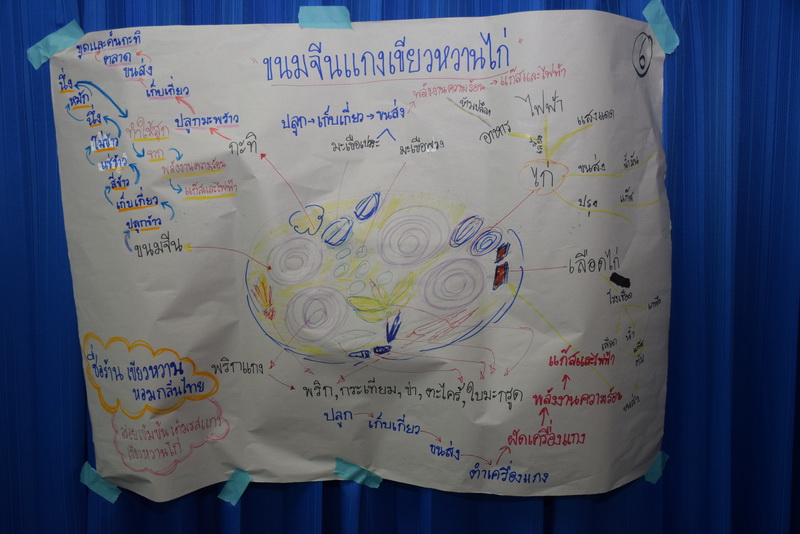 ขนมจีนแกงเขียวหวานไก่
6
ขูดและคั้นกะทิ
ตลาด
ขนส่ง
เก็บเกี่ยว
ปลูกมะพร้าว
กะทิ
นึ่ง
หมัก
นึ่ง
โม่ข้าว
แช่ข้าว
สีข้าว
เก็บเกี่ยว
ปลูกข้าว
ขนมจีน
ทำให้สุก
จาก
พลังงานความร้อน
แก๊สและไฟฟ้า
ปลูก → เก็บเกี่ยว → ขนส่ง
พลังงานความร้อน → แก๊สและไฟฟ้า
มะเขือเปราะ
มะเขือพวง
อาหาร
ไฟฟ้า
แสงแดด
ไก่
ขนส่ง
น้ำมัน
ปรุง
แก๊ส
เลือดไก่
โรงเชือด
พริกแกง
พริก, กระเทียม, ข่า, ตะไคร้, ใบมะกรูด
ปลูก
เก็บเกี่ยว
ขนส่ง
ตำเครื่องแกง
ผัดเครื่องแกง
พลังงานความร้อน
แก๊สและไฟฟ้า
ขนส่ง
ชื่อร้าน เขียวหวาน
หอมกลิ่นไทย
เขียวหวานไก่